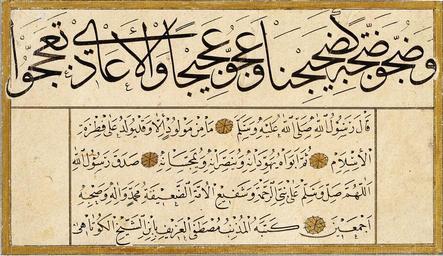 وضجوا ضجة كضجيجنا وعجوا عجيجا والأعادي
قال رسول الله صلى الله عليه وسلم ما من مولود الا وقد يولد على فطرة
الاسلام ثم ابواه يهودانه وينصرانه ويمجسانه صدق رسول الله
اللهم صل وسلم على نبي الرحمة وشفيع الامة الضعيفة محمد واله وصحبه
اجمعين كتبه المذنب مصطفى ابن الشيخ الكوتاهي